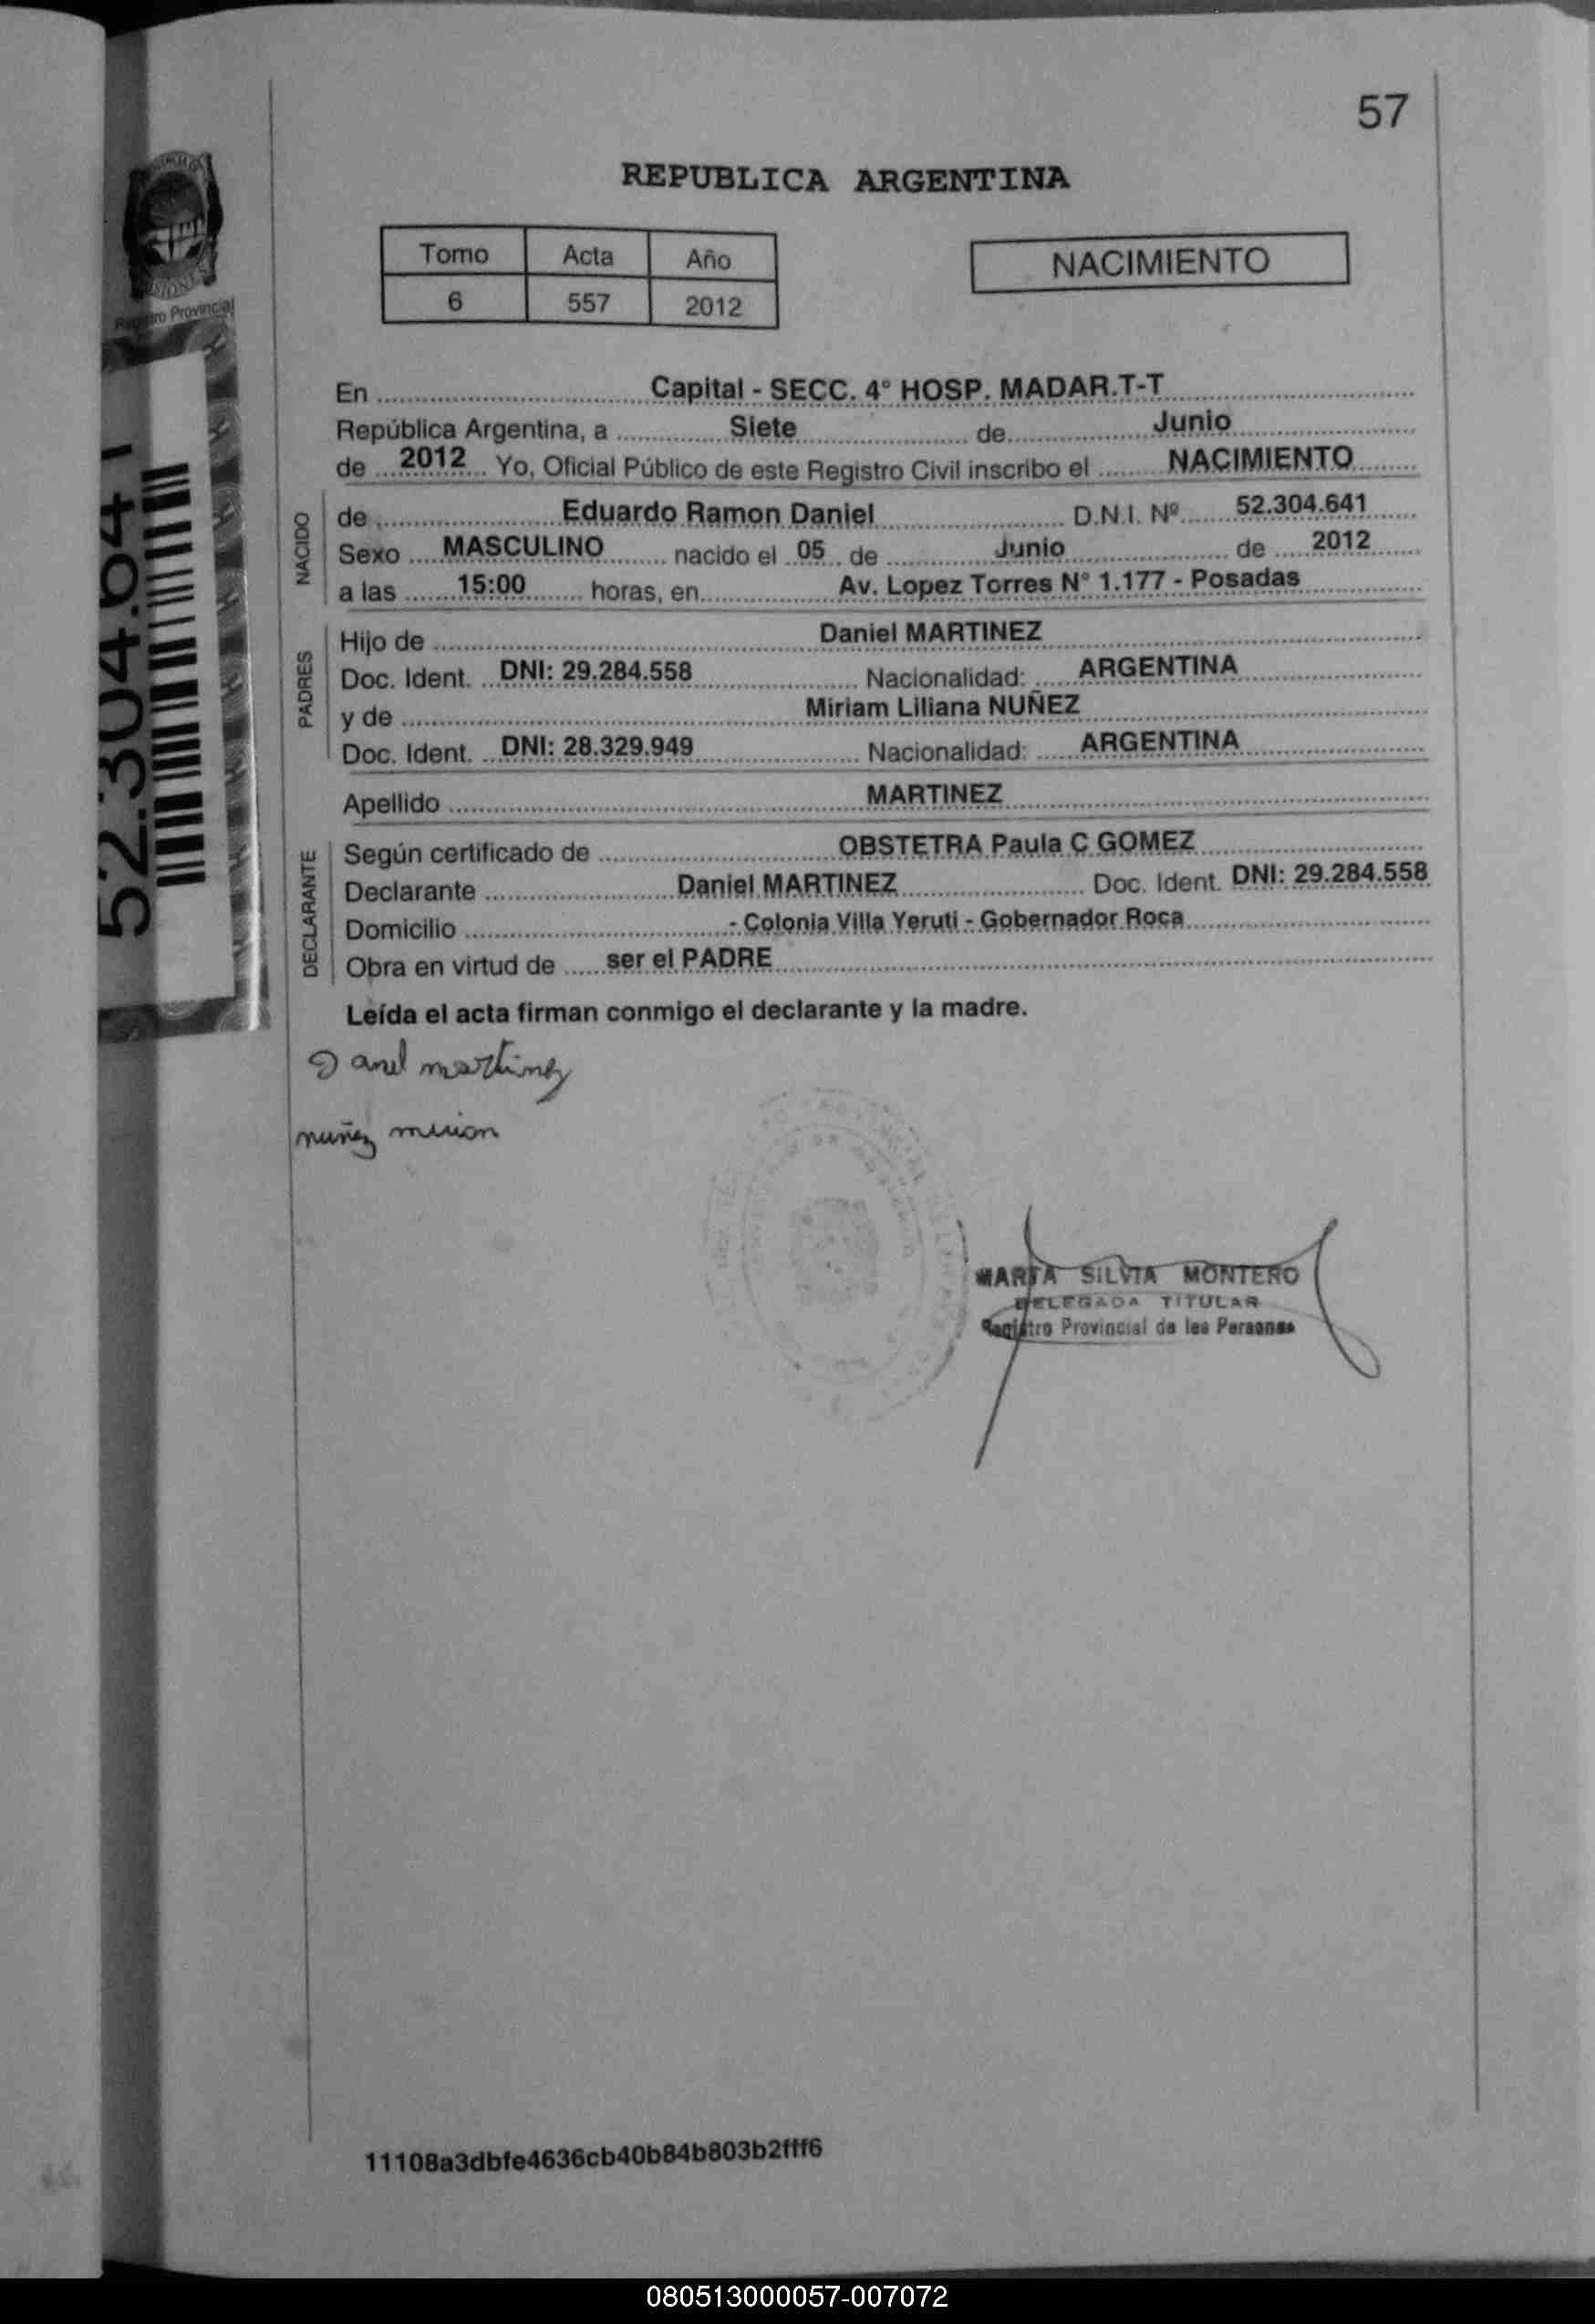 57
REPUBLICA ARGENTINA
Tomo Acta Año
6 557 2012
NACIMIENTO
Registro Provincial
52.304.641
En Capital - SECC. 4° HOSP. MADAR.T-T
República Argentina, a Siete de Junio
de 2012 Yo, Oficial Público de este Registro Civil inscribo el NACIMIENTO
NACIDO
de Eduardo Ramon Daniel D.N.I. Nº 52.304.641
Sexo MASCULINO nacido el 05 de Junio de 2012
a las 15:00 horas, en Av. Lopez Torres N° 1.177 - Posadas
PADRES
Hijo de Daniel MARTINEZ
Doc. Ident. DNI: 29.284.558 Nacionalidad: ARGENTINA
y de Miriam Liliana NUÑEZ
Doc. Ident. DNI: 28.329.949 Nacionalidad: ARGENTINA
Apellido MARTINEZ
DECLARANTE
Según certificado de OBSTETRA Paula C GOMEZ
Declarante Daniel MARTINEZ Doc. Ident. DNI: 29.284.558
Domicilio - Colonia Villa Yeruti - Gobernador Roca
Obra en virtud de ser el PADRE
Leída el acta firman conmigo el declarante y la madre.
Daniel martinez
nuñez mirian
MARTA SILVIA MONTERO
DELEGADA TITULAR
Registro Provincial de las Personas
11108a3dbfe4636cb40b84b803b2fff6
080513000057-007072